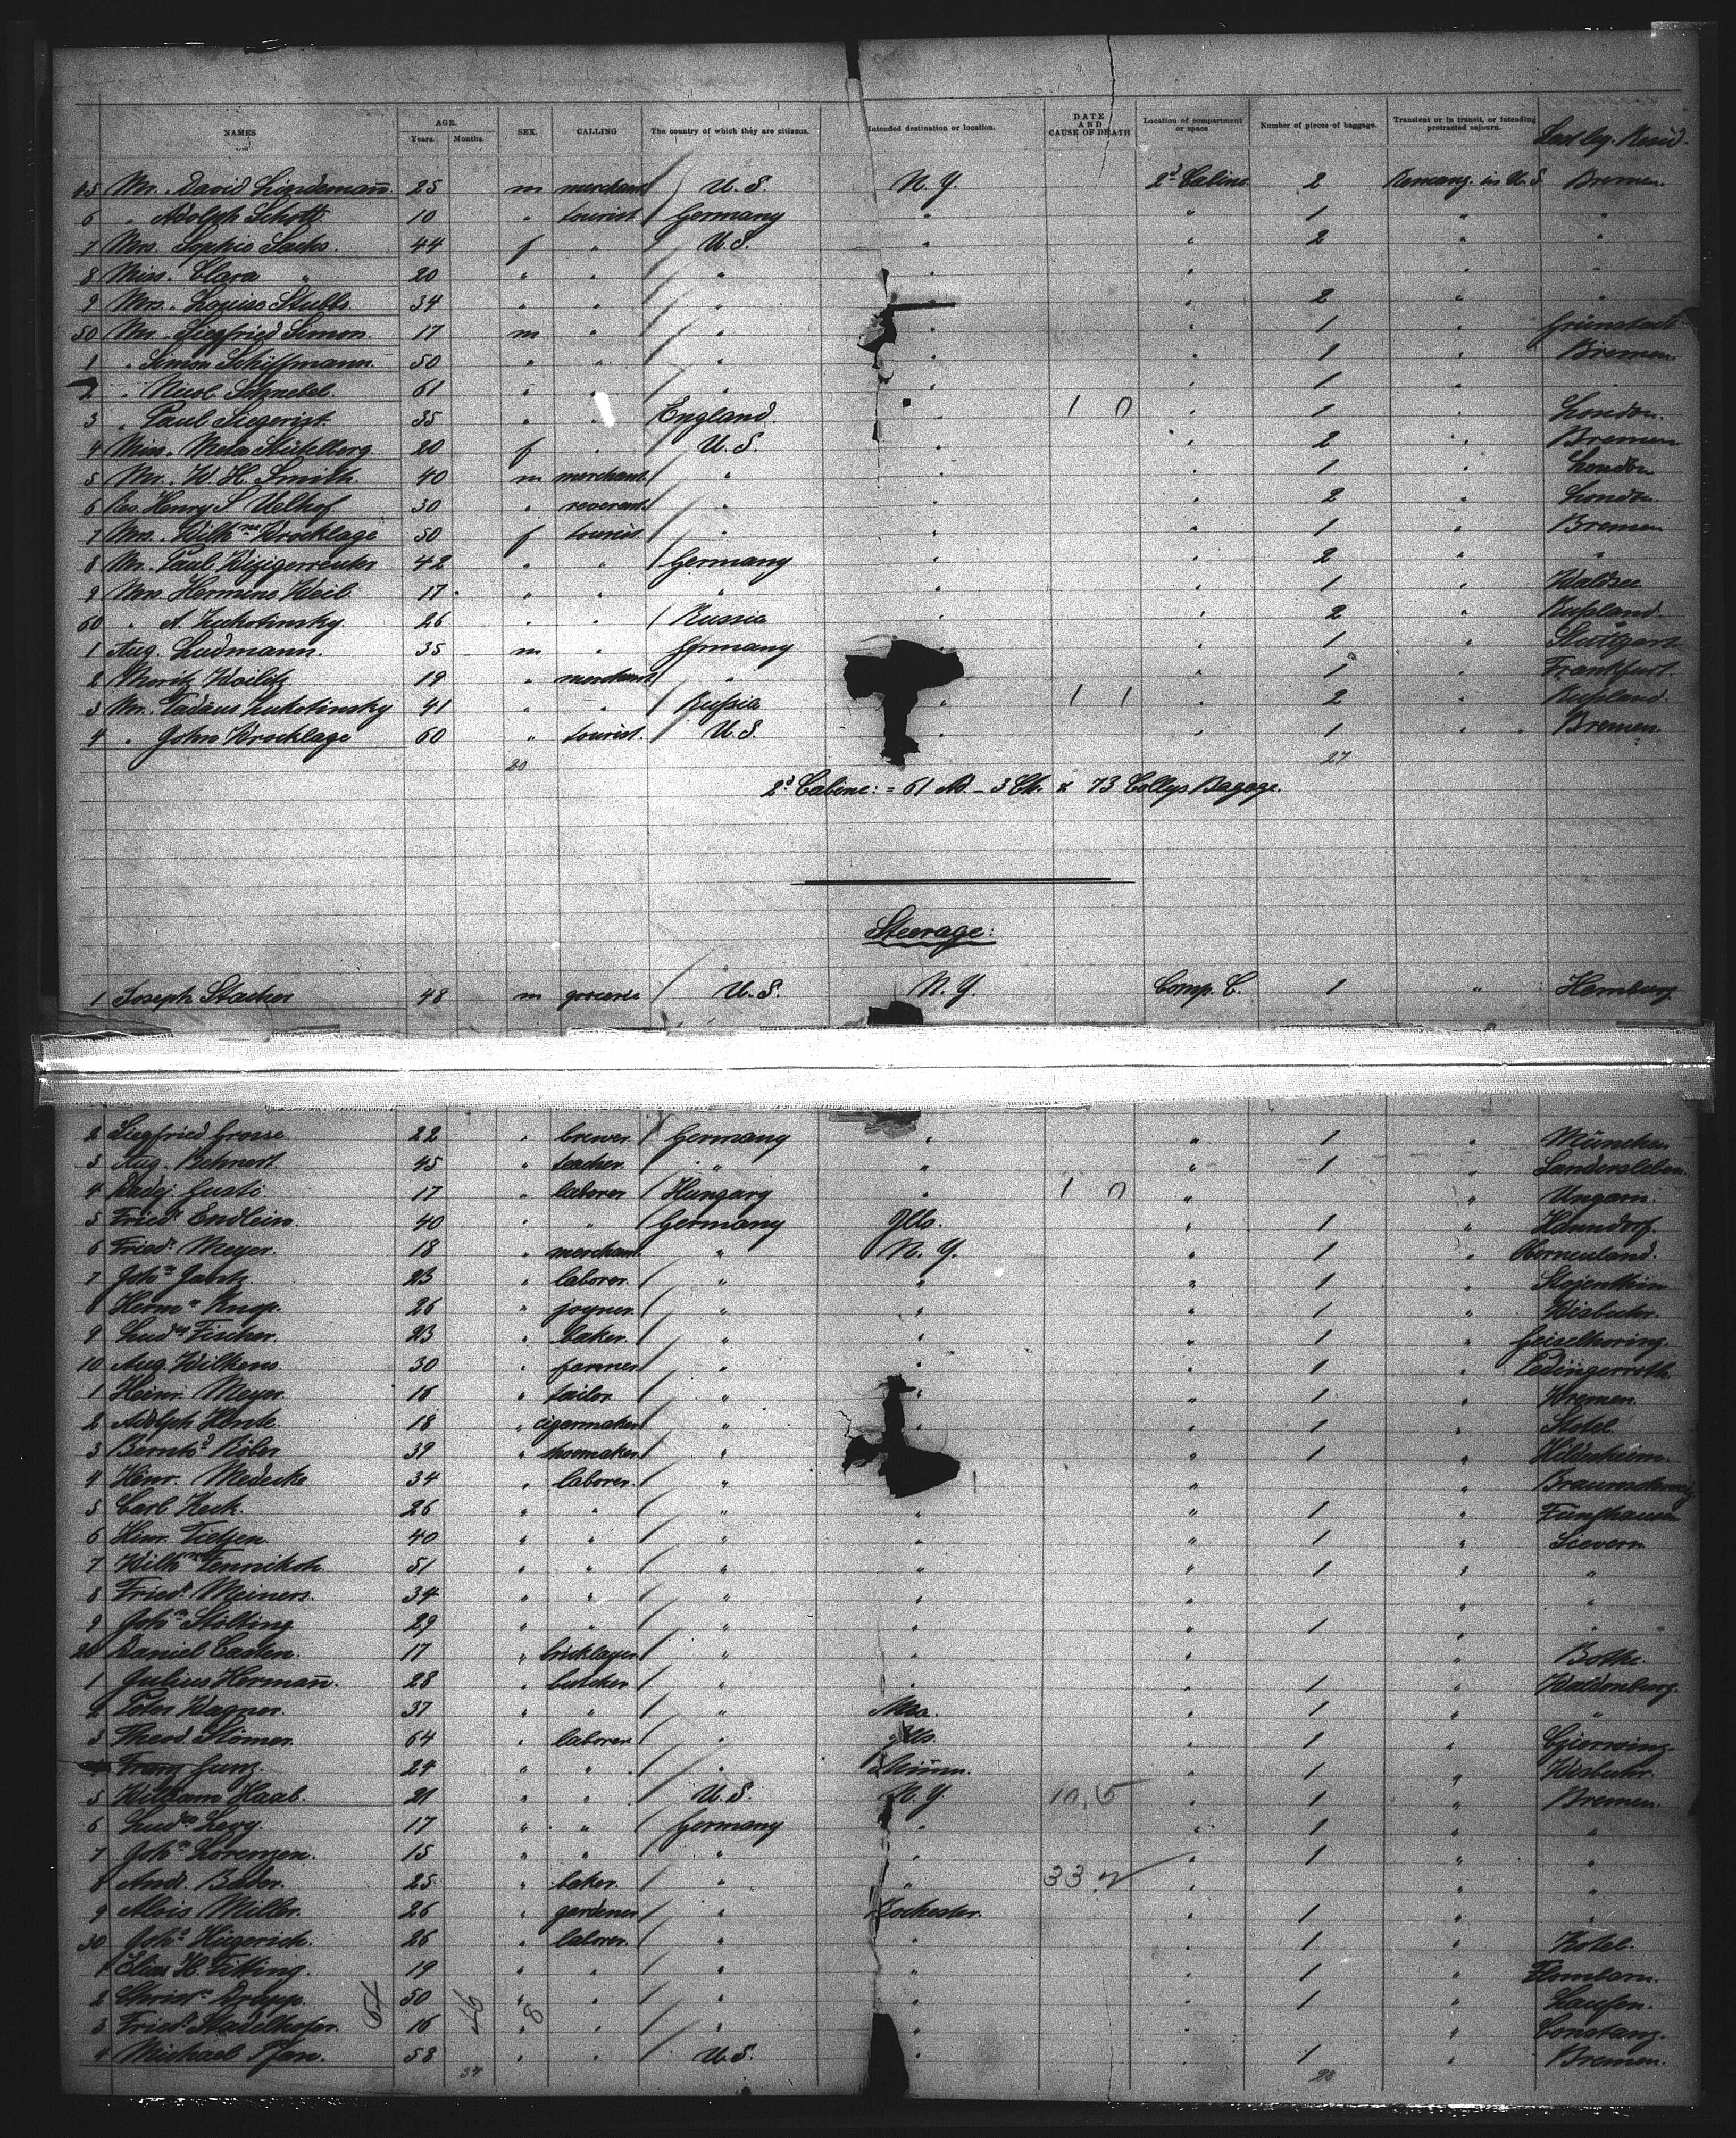 NAMES AGE. Years. Months. SEX. CALLING The country of which they are citizens. Intended destination or location. DATE AND CAUSE OF DEATH Location of compartment or space Number of pieces of baggage. Transient or in transit, or intending protracted sojourn. Last leg. Resid.
45 Mr. David Lindemann. 25 m merchant U.S. N.Y. 2d Cabine 2 Bremen.
6 " Adolph Schott 10 " tourist Germany " " 1 " "
7 Mrs. Sophie Sachs. 44 f " U.S. " " 2 " "
8 Miss. Clara " 20 " " " " " " "
9 Mrs. Louise Stubbs. 34 " " " " " 2 " "
50 Mr. Siegfried Simon. 17 m " " " " 1 " Grünstadt
1 " Simon Schiffmann. 50 " " " " " 1 " Bremen.
2 " Nicol. Schnebel. 61 " " " " " 1 " "
3 " Paul Siegerist. 35 " " England. " 1 0 " 1 " London.
4 Miss. Meta Stütelberg 20 f " U.S. " " 2 " Bremen
5 Mr. W. H. Smith. 40 m merchant. " " " 1 " London
6 Rev. Henry S. Uelhof 30 " reverent. " " " 2 " London.
7 Mrs. Wilhne Brocklage 50 f tourist. " " " 1 " Bremen
8 Mr. Paul 42 " " Germany " " 2 " "
9 Mrs. Hermine Weil. 17 " " " " " 1 " Waldsee
60 " A. Lukotinsky. 26 " " Russia " " 2 " Rußland.
1 Aug. Ludmann. 35 m " Germany " " 1 " Stuttgart
2 Moritz 19 " merchant " " " 1 " Frankfurt.
3 Mr. Tadäus Lukotinsky 41 " " Rußia " 1 1 " 2 " Rußland.
4 " John Brocklage 60 " tourist. U.S. " " 1 " Bremen.
20 27
2d Cabine: = 61 Ad. - 3 Ch. & 73 Collys Bagage.
Steerage:
1 Joseph Stacher 48 m grocerie U.S. N.Y. Comp. C. 1 " Hamburg
2 Siegfried Grosse 22 " brewer Germany " " 1 " München
3 Aug. Behnert 45 " teacher. " " " 1 " Sandersleben.
4 Gusti. 17 " laborer Hungary " 1 0 " " Ungarn.
5 Friedr. Endlein. 40 " " Germany Ills. " 1 "
6 Friedr. Meyer. 18 " merchant. " N.Y. " 1 " Oberneuland.
7 Johs. Jantz. 23 " laborer. " " " 1 "
8 Hermn. Knop. 26 " joyner. " " " 1 " Wisbuhr.
9 Ludw. Fischer. 23 " baker. " " " 1 " Geiselhoring.
10 Aug. Wilkens. 30 " farmer " " " 1 "
1 Heinr. Meyer. 16 " tailor " " " 1 " Bremen.
2 Adolph Hente. 18 " cigarmaker " " " 1 " Stotel.
3 Bernhd. Röber 39 " shoemaker " " " 1 " Hildesheim.
4 Heinr. Medecke 34 " laborer. " " " " Braunschweig
5 Carl Keck. 26 " " " " " 1 " Fünfhausen
6 Heinr. Tietjen. 40 " " " " " 1 " Sievern
7 Wilhm. Tennikoh. 51 " " " " " 1 " "
8 Friedr. Meiners. 34 " " " " " " "
9 Johs. Stölting. 29 " " " " " 1 " "
20 Daniel Casten. 17 " bricklayer " " " "
1 Julius Hermann. 28 " butcher " " " 1 " Waldenburg.
2 Peter Wagner. 37 " " " " 1 " "
3 Theod. Stömer. 64 " laborer " Ills. " 1 "
4 Franz Gunz. 24 " " " Minn. " 1 " Wisbuhr.
5 William Haab. 21 " " U.S. N.Y. " 1 " Bremen.
6 Ludw. Levy. 17 " " Germany " " 1 " "
7 Johs. Lorenzen. 15 " " " " " 1 " "
8 Andr. Bader. 25 " baker. " " 33 " " "
9 Alois Miller. 26 " gardener " Rochester. " 1 " "
30 Johs. Hügerich. 26 " laborer. " " " 1 "
1 Elias H. Fitting. 19 " " " " " 1 " Flomborn.
2 Christn. Dropp. 50 " " " " " 1 " Laufen.
3 Friedr. Stadelhofer. 16 " " " " " " Constanz.
4 Michael Pfan. 58 " " U.S. " " 1 " Bremen.
54 46 8
34 28